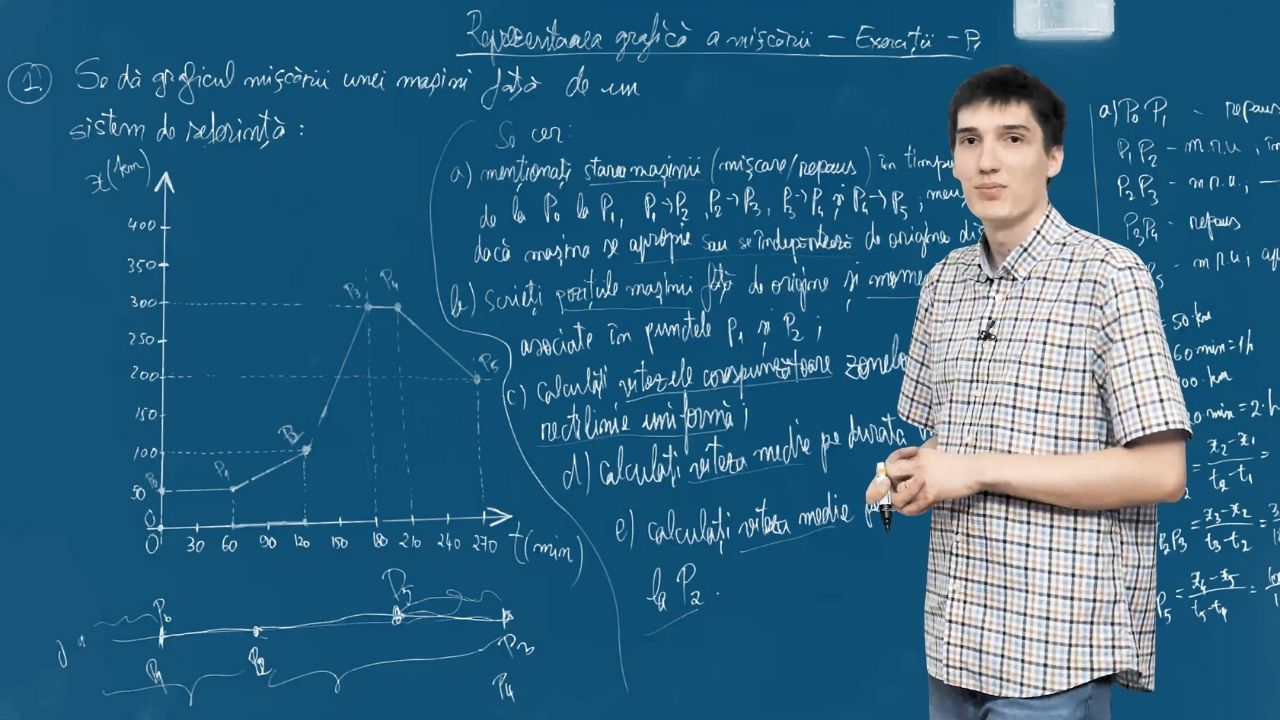 Reprezentarea grafică a mișcării – Exerciții – P1
1 Se dă graficul mișcării unei mașini față de un
sistem de referință:
x(km)
400
350
300
250
200
150
100
50
0
0 30 60 90 120 150 180 210 240 270 t(min)
P0 P1 P2 P3 P4 P5
Se cer:
a) menționați starea mașinii (mișcare/repaus) în
de la P0 la P1, P1→P2, P2→P3, P3→P4 și P4→P5;
dacă mașina se apropie sau se îndepărtează de originea
b) scrieți pozițiile mașinii față de origine și
asociate în punctele P1 și P2;
c) calculați vitezele corespunzătoare
rectilinie uniformă;
d) calculați viteza medie pe durata
e) calculați viteza medie
la P2.
P0 P5
P1 P2 P3
P4
a) P0 P1 – repaus
P1P2 – m.r.u.,
P2P3 – m.r.u.,
P3P4 – repaus
m.r.u.,
= 50 km
60 min = 1h
00 km
20 min = 2h
= x2-x1/t2-t1 =
P2P3 = x3-x2/t3-t2 =
P5 = x4-x5/t5-t4 =